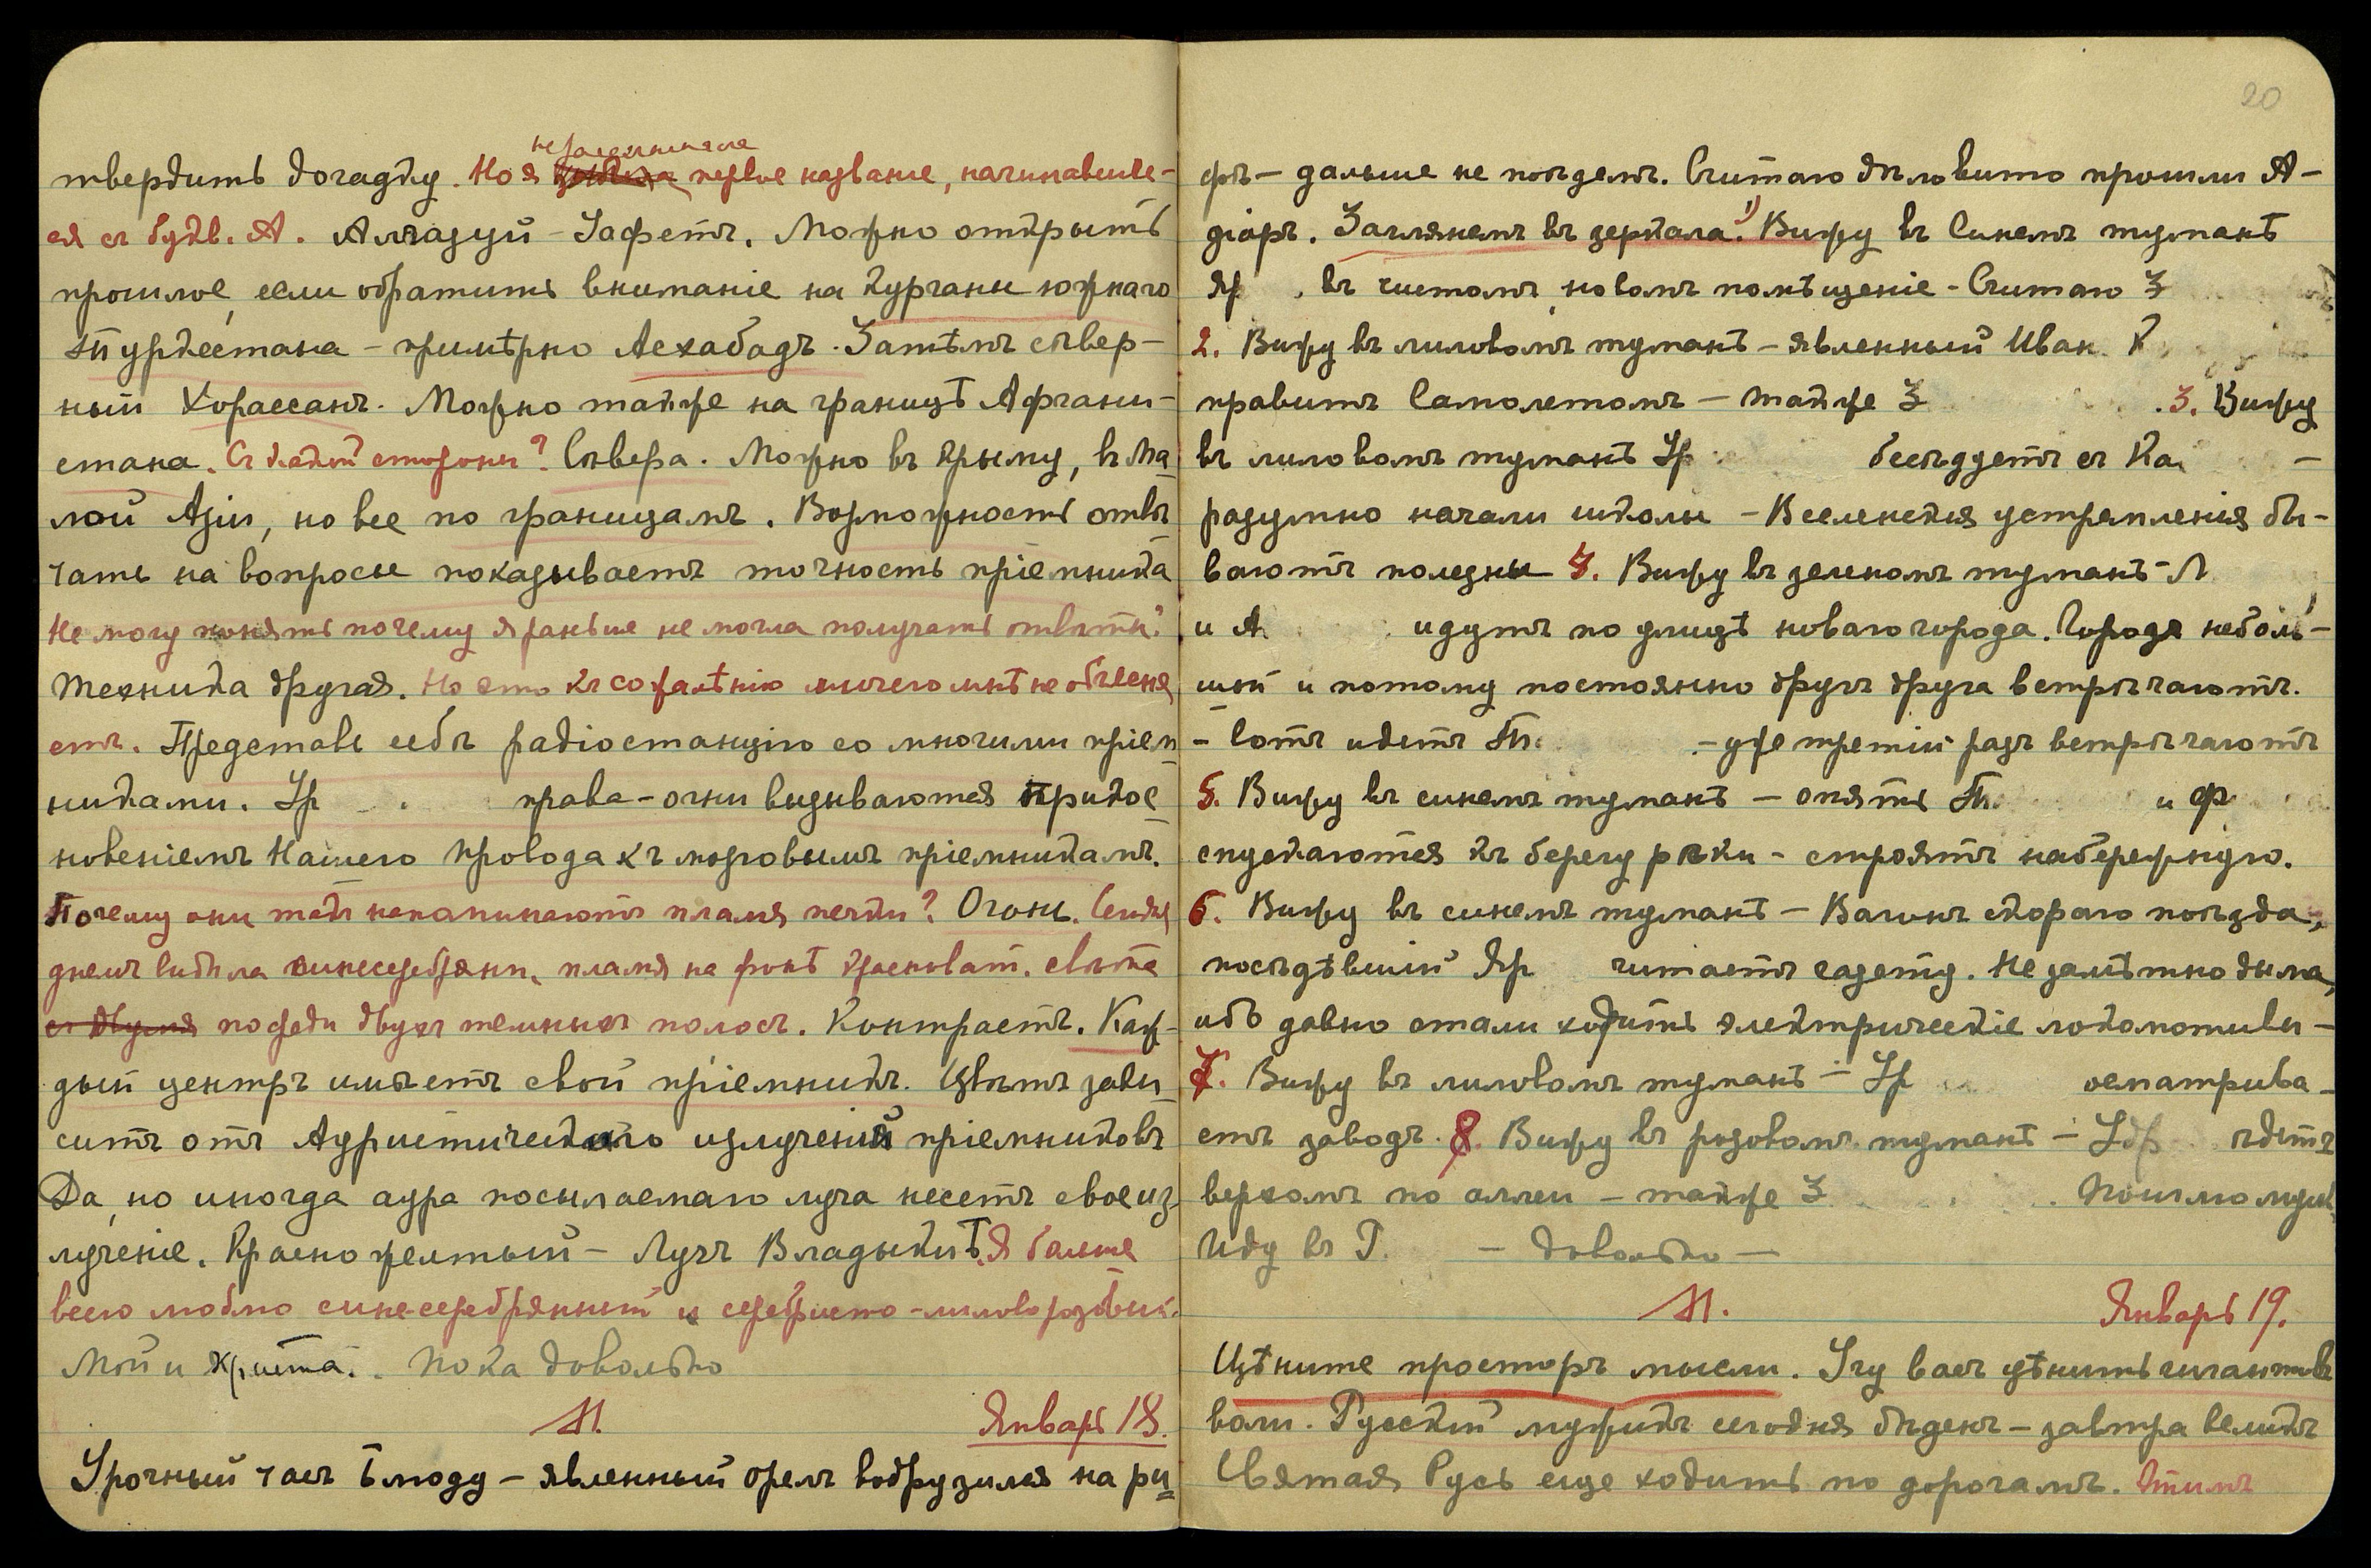 твердить догадку. Но я не запомнила первое названіе, начинавшее-
ся съ букв. А. Алмазуй – Іафетъ. Можно открыть
прошлое, если обратить вниманіе на курганы южнаго
Туркестана – примѣрно Асхабадъ. Затѣмъ сѣвер-
ный Хорассанъ. Можно также на границѣ Афгани-
стана. Съ какой стороны? Сѣвера. Можно въ Крыму, въ Ма
лой Азіи, но все по границамъ. Возможность отвѣ
чать на вопросы показываетъ точность пріемника
Не могу понять почему я раньше не могла получать отвѣты?
Техника другая. Но это къ сожалѣнію ничего мнѣ не объясня
етъ. Представь себѣ радіостанцію со многими пріем
никами. Ур права – огни вызываются прикос
новеніемъ Нашего провода къ мозговымъ пріемникамъ.
Почему они такъ напоминаютъ пламя печки? Огонь.
днемъ видѣла синесеребрян. пламя на фонѣ красноват. свѣта
съ двумя посреди двухъ темныхъ полосъ. Контрастъ. Каж-
дый центръ имѣетъ свой пріемникъ. Цвѣтъ зави
ситъ отъ Ауристическаго излученія пріемниковъ
Да, но иногда аура посылаемаго луча несетъ свое из-
лученіе. Красно желтый – Лучъ Владыкъ. Я больше
всего люблю синесеребрянный и серебристо-лиловорозовый.
Мой и Христа. Пока довольно
М. Январь 18.
Урочный часъ блюду – явленный орелъ водрузился на ри
20
фѣ – дальше не поѣдемъ. Считаю дѣловито прошли А-
діаръ. Заглянемъ въ зеркала. 1) Вижу въ Синемъ туманѣ
Яр въ чистомъ новомъ помѣщеніе – Считаю З
2. Вижу въ лиловомъ туманѣ – явленный Иван Х
правитъ Самолетомъ – также З 3. Вижу
въ лиловомъ туманѣ Ур бесѣдуетъ съ Ка –
разумно начали школы – Вселенскія устремленія бы-
ваютъ полезны 4. Вижу въ зеленомъ туманѣ – Л
и А идутъ по улицѣ новаго города. Городъ неболь-
шой и потому постоянно другъ друга встрѣчаютъ.
– Вотъ идетъ Т. – уже третій разъ встрѣчаютъ
5. Вижу въ синемъ туманѣ – опять Т. и Ф
спускаются къ берегу рѣки – строятъ набережную.
6. Вижу въ синемъ туманѣ – Вагонъ скораго поѣзда,
посѣдѣвшій Яр читаетъ газету. Не замѣтно дыма,
ибо давно стали ходить электрическіе локомотивы –
7. Вижу въ лиловомъ туманѣ – Ур осматрива-
етъ заводъ. 8. Вижу въ розовомъ туманѣ – Удр ѣдетъ
верхомъ по аллеи – также З Пошлю лучи
Иду въ Г. – довольно –
М. Январь 19.
Цѣните просторъ мысли. Учу васъ цѣнить гигантовъ
воли. Русскій мужикъ сегодня бѣденъ – завтра великъ
Святая Русь еще ходитъ по дорогамъ.